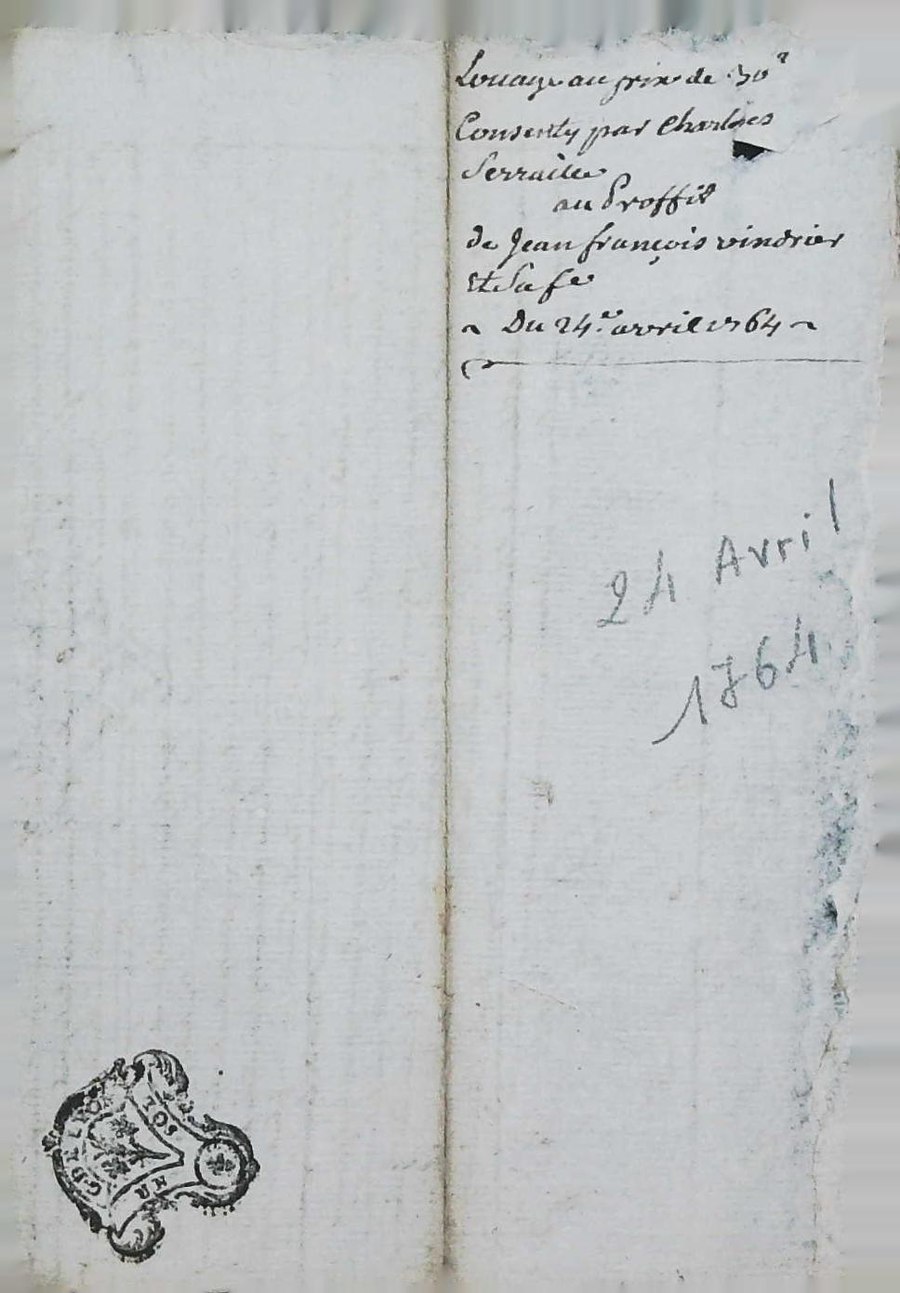 Louage au prix de 30ᵗ
Consenty par Charles
Serraille
au Proffit
de Jean françois vindrier
Et Sa fe
~ Du 24.e avril 1764 ~
24 Avril
1764
G. DE LYON
UN SOL